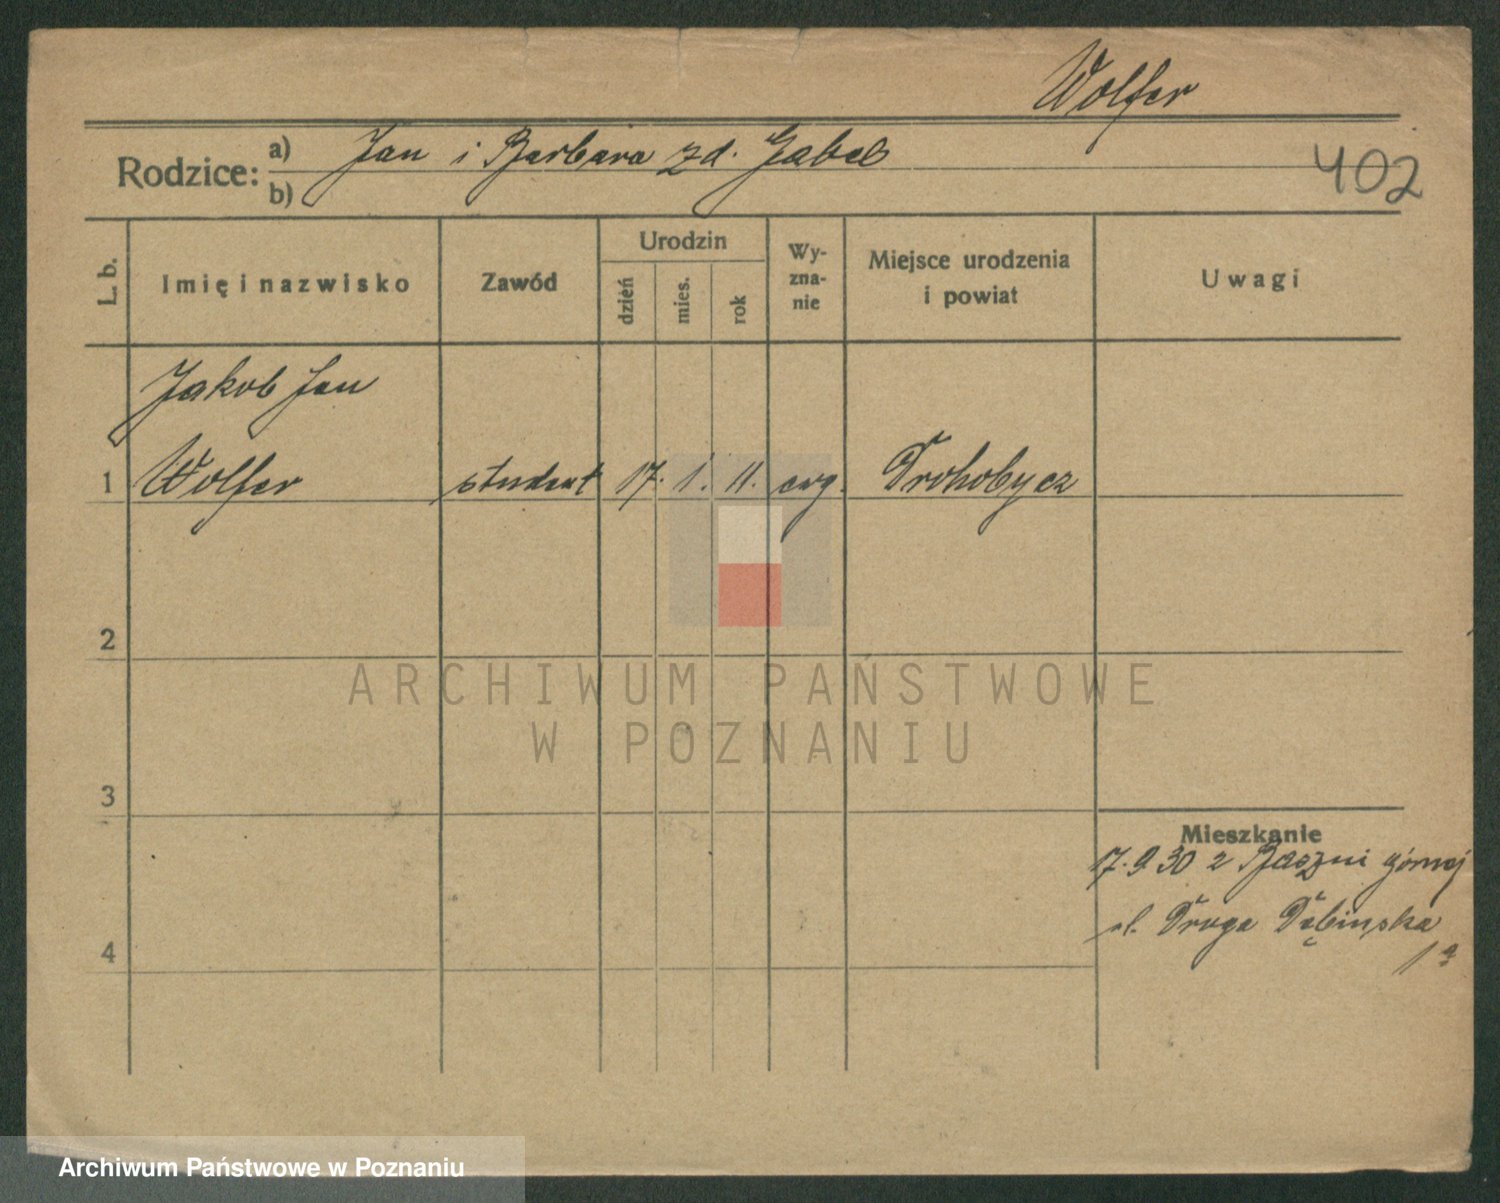 Wolfer
Rodzice: a) Jan i Barbara zd. Gabel
b)
402
L. b.
Imię i nazwisko
Zawód
Urodzin
dzień
mies.
rok
Wy-
zna-
nie
Miejsce urodzenia
i powiat
Uwagi
Jakob Jan
1 Wolfer student 17. 1. 11. ewg. Drohobycz
2
ARCHIWUM PAŃSTWOWE
W POZNANIU
3
Mieszkanie
17.9 30 z Baszni górnej
ul. Droga Dębinska
4
Archiwum Państwowe w Poznaniu